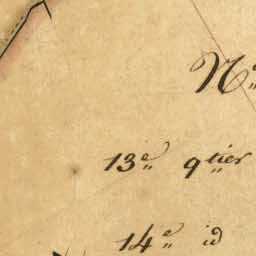 N°
13e qtier
14e id